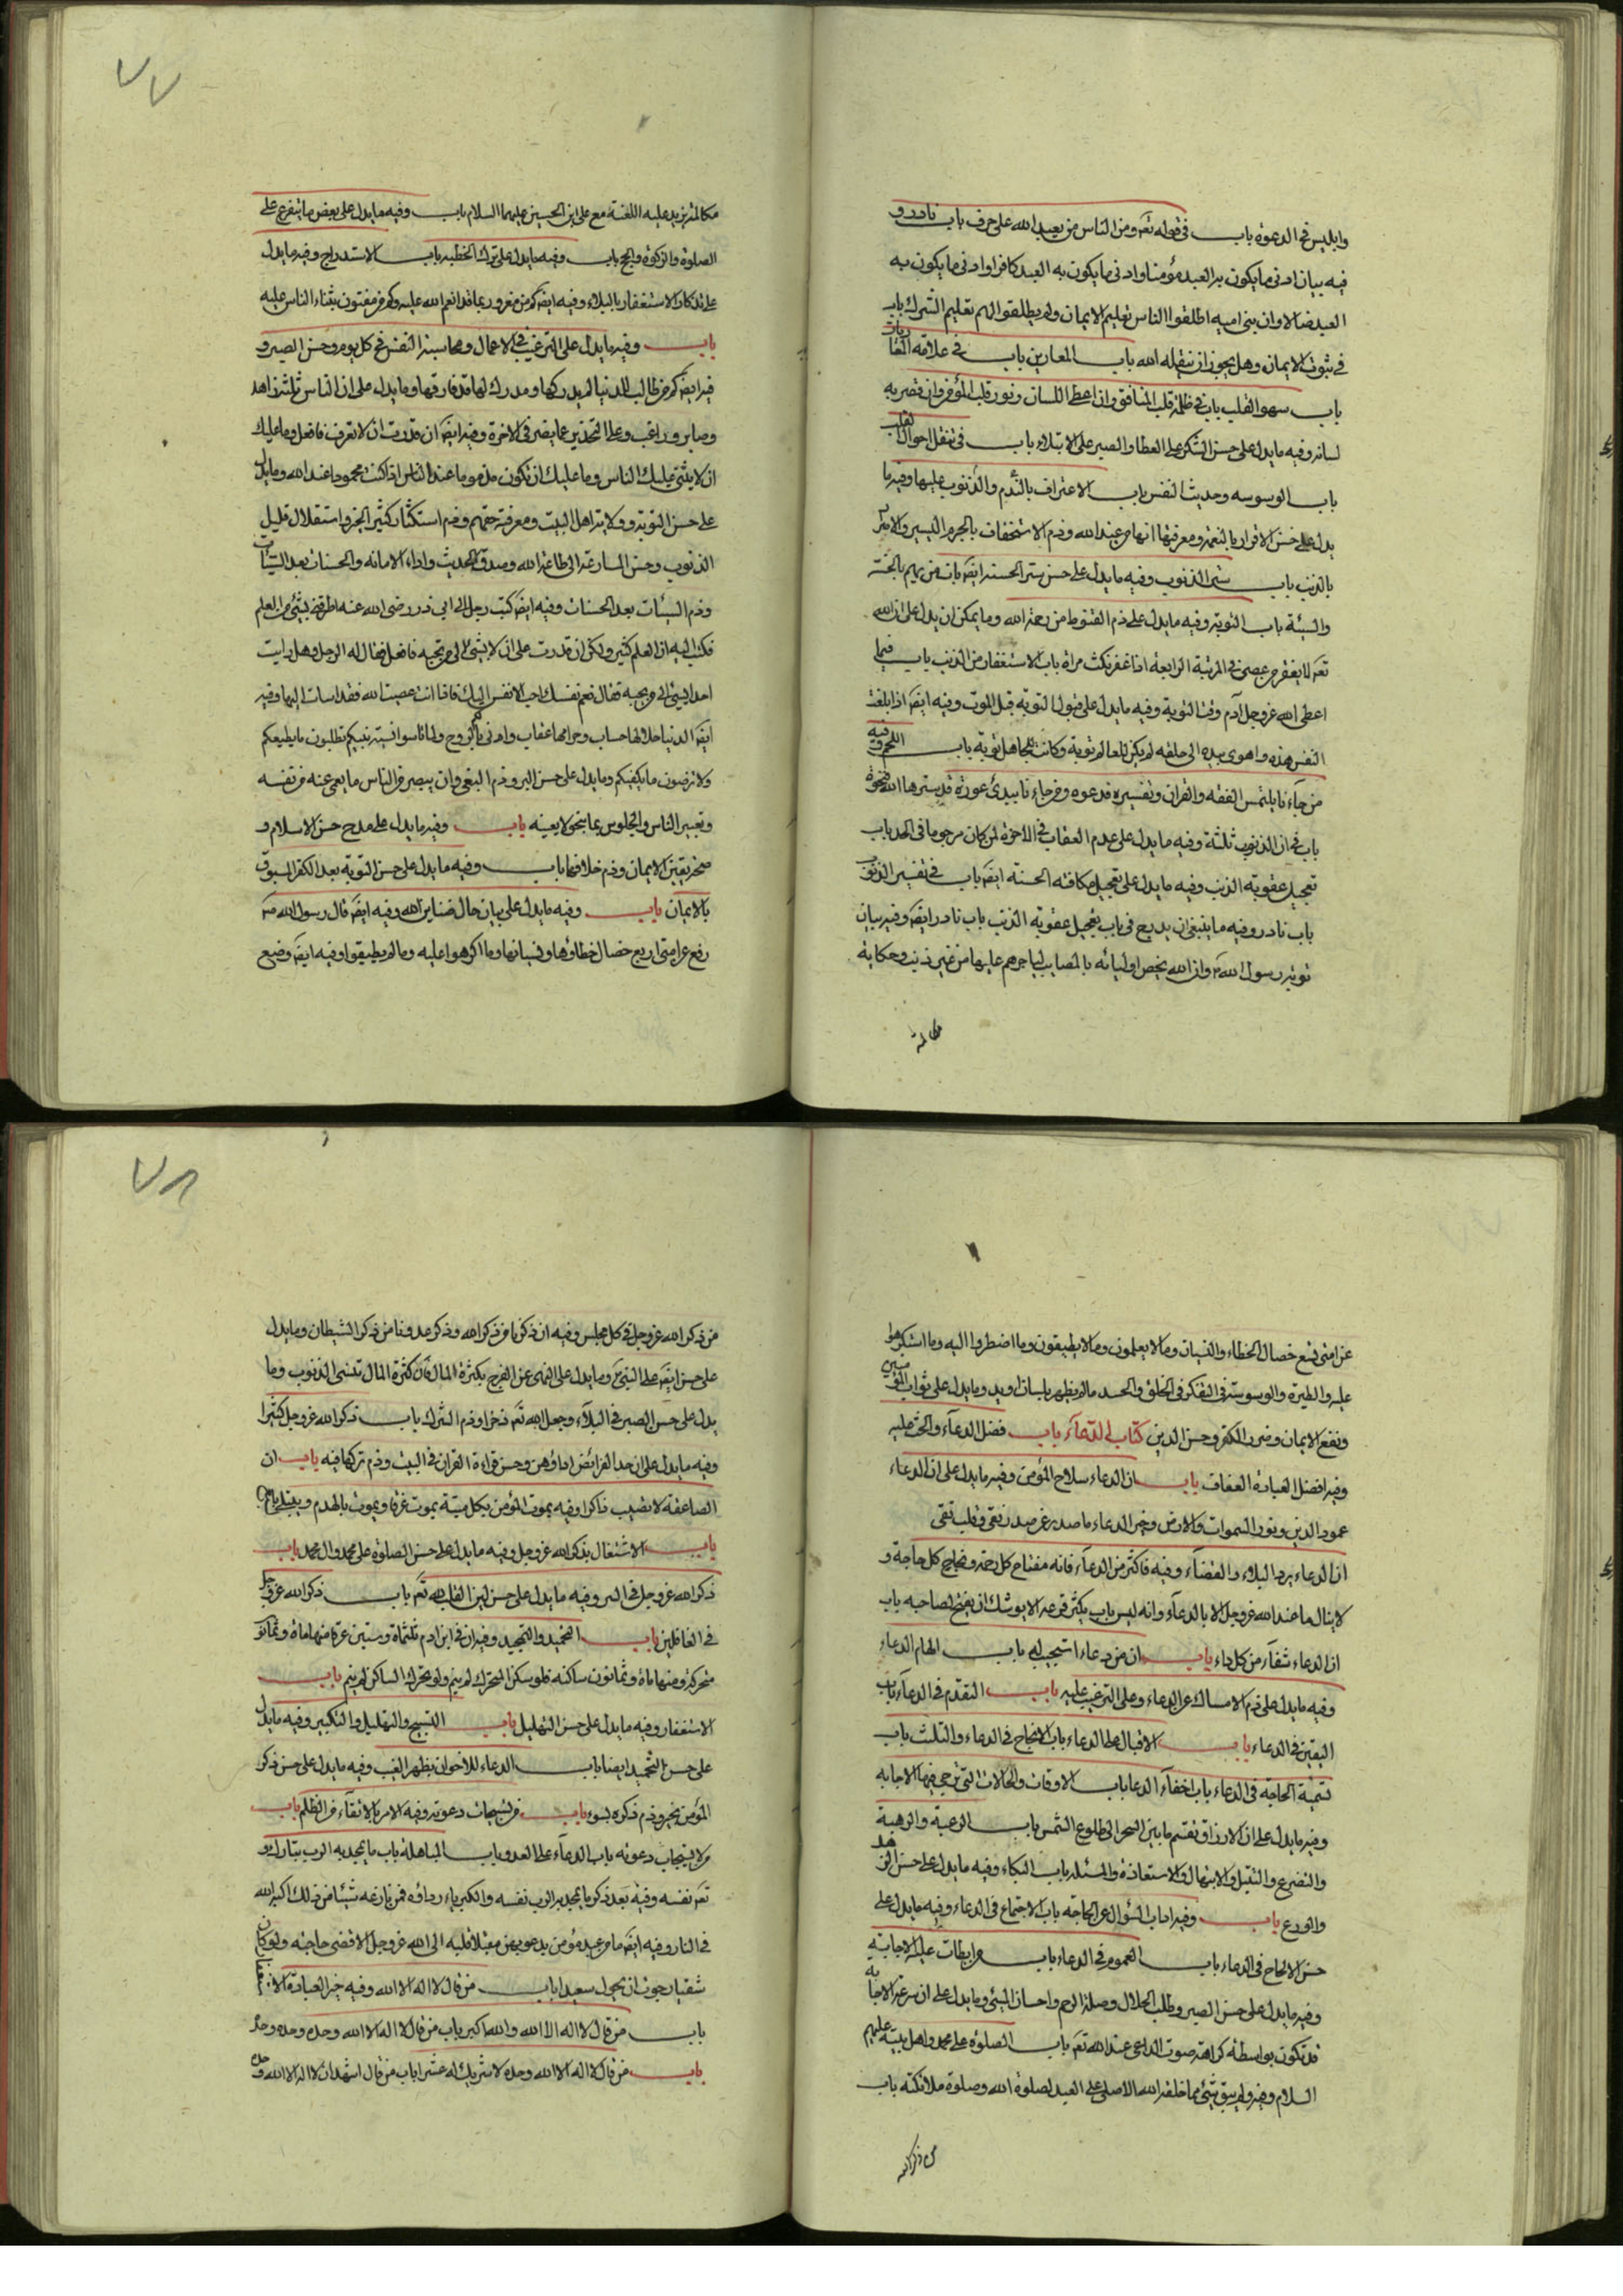 وابليس في الدعوة باب في قوله تعه ومن الناس من يعبد الله على حرف باب نادر و
فيه بيان ادنى ما يكون به العبد مؤمنا وادنى ما يكون به العبد كافرا وادنى ما يكون به
العبد ضالا وان بني اميه اطلقوا الناس تعليم الايمان ولم يطلقوا لهم تعليم الشرك باب
في ثبوت الايمان وهل يجوز ان ينقله الله باب المعارين باب في علامة المعار باب
باب سهو القلب باب في ظلمة قلب المنافق وان اعطى اللسان ونور قلب المؤمن وان قصر به
لسانه وفيه ما يدل على حسن الشكر على العطا والصبر على الابتلاء باب في تنقل احوال القلب
باب الوسوسه وحديث النفس باب الاعتراف بالذنوب والندم عليها وفيه ما
يدل على حسن الاقرار بالنعمة ومعرفتها انها من عند الله وذم الاستخفاف بالجرم اليسير والاصر
بالذنب باب ستر الذنوب وفيه ما يدل على حسن ستر الحسنة ايضه باب من يهم بالحسنة
والسيئة باب التوبة وفيه ما يدل على ذم القنوط من رحمة الله وما يمكن ان يدل على ان الله
تعه لا يغفر من عصى في المرتبة الرابعة اذا غفر ثلث مراة باب الاستغفار من الذنب باب فيما
اعطى الله عز وجل آدم وقت التوبة وفيه ما يدل على قبول التوبة قبل الموت وفيه ايضه اذا بلغت
النفس هذه واهوى بيده الى حلقه لم يكن للعالم توبة وكانت للجاهل توبة باب اللمم وفيه
من جاءنا يلتمس الفقه والقران وتفسيره فدعوه ومن جاءنا يبدى عورة قد سترها الله فنحوه
باب في ان الذنوب ثلثة وفيه ما يدل على عدم العقاب في الآخرة لمن كان مرجوما في الحد باب
تعجيل عقوبة الذنب وفيه ما يدل على تعجيل مكافته الحسنة ايضه باب في تفسير الذنوب
باب نادر وفيه ما ينبغي ان يدرج في باب تعجيل عقوبة الذنب باب نادر ايضه وفيه بيان
توبة رسول الله ص وان الله يخص اوليائه بالمصايب لياجرهم عليها من غير ذنب وحكاية
مكالمة
٧٧
مكالمة يزيد عليه اللعنة مع علي ابن الحسين عليهما السلام باب وفيه ما يدل على بعض ما يتفرع على
الصلوة والزكوة والحج باب وفيه ما يدل على ترك الخطيه باب الاستدراج وفيه ما يدل
على تذكار الاستغفار بالبلاء وفيه ايضه كم من مغرور بما قد انعم الله عليه وكم من مفتون بثناء الناس عليه
باب وفيه ما يدل على الترغيب في الاعمال ومحاسبة النفس في كل يوم وحسن الصبر و
فيه ايضه كم من طالب للدنيا لم يدركها ومدرك لها قد فارقها وما يدل على ان الناس ثلثة زاهد
وصابر وراغب وعلى التحذير عما يضر في الاخرة وفيه ايضه ان قدرت ان لا تعرف فافعل وما عليك
ان لا يثنى عليك الناس وما عليك ان تكون مذموما عند الناس اذا كنت محمودا عند الله وما يدل
على حسن التوبة وولاية اهل البيت ومعرفة حقهم وذم استكثار كثير الخير واستقلال قليل
الذنوب وحسن المسارعة الى طاعة الله وصدق الحديث واداء الامانه والحسنات بعد السيئات
وذم السيئات بعد الحسنات وفيه ايضه كتب رجل الى ابي ذر رضي الله عنه اطرفني بشئ من العلم
فكتب اليه ان العلم كثير ولكن ان قدرت على ان لا تسئ الى من تحبه فافعل فقال له الرجل وهل رايت
احدا يسئ الى من يحبه فقال نعم نفسك احب الانفس اليك فاذا انت عصيت الله فقد اسات اليها وفيه
ايضه الدنيا حلالها حساب وحرامها عقاب وانى بكم الروح ولما تاسوا بسنة نبيكم تطلبون ما يطغيكم
ولا ترضون ما يكفيكم وما يدل على حسن البر وذم البغي وان يبصر من الناس ما يعمى عنه من نفسه
وتعيير الناس والجلوس بما لا يعنيه باب وفيه ما يدل على مدح حسن الاسلام و
صحة يقين الايمان وذم خلافها باب وفيه ما يدل على حسن التوبة بعد الكفر المسبوق
بالايمان باب وفيه ما يدل على بيان حال ضناين الله وفيه ايضه قال رسول الله ص
رفع عن امتي اربع خصال خطاؤها ونسيانها وما اكرهوا عليه وما لم يطيقوا وفيه ايضه وضع
عن امتي تسع خصال الخطاء والنسيان وما لا يعلمون وما لا يطيقون وما اضطروا اليه وما استكرهوا
عليه والطيرة والوسوسة في التفكر في الخلق والحسد ما لم يظهر بلسان او يد وما يدل على ثواب المؤمنين
ونفع الايمان وضرر الكفر وحسن الدين كتاب الدعآء باب فضل الدعآء والحث عليه
وفيه افضل العبادة العفاف باب ان الدعاء سلاح المؤمن وفيه ما يدل على ان الدعاء
عمود الدين ونور السموات والارض وخير الدعاء ما صدر عن صدر نقي وقلب تقي
ان الدعاء يرد البلاء والقضآء وفيه فاكثر من الدعآء فانه مفتاح كل رحمة ونجاح كل حاجة و
لا ينال ما عند الله عز وجل الا بالدعآء وانه ليس باب يكثر قرعه الا يوشك ان يفتح لصاحبه باب
ان الدعاء شفآء من كل داء باب ان من دعاء استجيب له باب الهام الدعاء
وفيه ما يدل على ذم الامساك عن الدعاء وعلى الترغيب عليه باب التقدم في الدعآء باب
اليقين في الدعاء باب الاقبال على الدعاء باب الالحاح في الدعاء والتلبث باب
تسمية الحاجة في الدعاء باب اخفآء الدعا باب الاوقات والحالات التي ترجى فيها الاجابه
وفيه ما يدل على ان الارزاق تقسم ما بين السحر الى طلوع الشمس باب الرغبة والرهبة
والتضرع والتبتل والابتهال والاستعاذة والمسئله باب البكاء وفيه ما يدل على حسن الزهد
والورع باب وفيه اداب السؤال عن الحاجة باب الاجتماع في الدعاء وفيه ما يدل على
حسن الالحاح في الدعاء باب العموم في الدعاء باب من ابطات عليه الاجابة
وفيه ما يدل على حسن الصبر وطلب الحلال وصلة الرحم واحسان المسئ وما يدل على ان سرعة الاجابه
قد تكون بواسطة كراهة صوت الداعي عند الله تعه باب الصلوة على محمد واهل بيته عليهم
السلام وفيه ولم يبق شئ مما خلقه الله الا صلى على العبد لصلوة الله وصلوة ملائكته باب
من ذكر الله
٧٨
من ذكر الله عز وجل في كل مجلس وفيه ان ذكرنا من ذكر الله وذكر عدونا من ذكر الشيطان وما يدل
على حسن ايضه على النبي ص وما يدل على النهي عن الفرح بكثرة المال فان كثرة المال تنسى الذنوب وما
يدل على حسن الصبر في البلآء وجعل الله تعه ذخرا وذم الشرك باب ذكر الله عز وجل كثيرا
وفيه ما يدل على ان حد الفرائض اداؤهن وحسن قراءة القران في البيت وذم تركها فيه باب ان
الصاعقة لا تصيب ذاكرا وفيه يموت المؤمن بكل ميتة يموت غرقا ويموت بالهدم ويبتلى بالسبع
باب الاشتغال بذكر الله عز وجل وفيه ما يدل على حسن الصلوة على محمد وال محمد باب
ذكر الله عز وجل في السر وفيه ما يدل على حسن لين القلب لله تعه باب ذكر الله عز وجل
في الغافلين باب التحميد والتمجيد وفيه ان في ابن ادم ثلثماة وستين عرقا منها ماة وثمانون
متحركة ومنها ماة وثمانون ساكنه فلو سكن المتحرك لم ينم ولو تحرك الساكن لم ينم باب
الاستغفار وفيه ما يدل على حسن التهليل باب التسبيح والتهليل والتكبير وفيه ما يدل
على حسن التحميد ايضا باب الدعاء للاخوان بظهر الغيب وفيه ما يدل على حسن ذكر
المؤمن بخير وذم ذكره بسوء باب من تستجاب دعوته وفيه الامر بالاتقآء من الظلم باب
من لا يستجاب دعوته باب الدعآء على العدو باب المباهلة باب ما يمجد به الرب تبارك و
تعه نفسه وفيه بعد ذكر ما يمجد به الرب نفسه والكبرياء رداؤه فمن نازعه شيئا من ذلك اكبه الله
في النار وفيه ايضه ما من عبد مؤمن يدعو بهن مقبلا قلبه الى الله عز وجل الا قضى حاجته ولو كان
شقيا رجوت ان يحول سعيدا باب من قال لا اله الا الله وفيه خير العبادة الاستغفار
باب من قال لا اله الا الله والله اكبر باب من قال لا اله الا الله وحده وحده وحده
باب من قال لا اله الا الله وحده لا شريك له عشرا باب من قال اشهد ان لا اله الا الله وحده